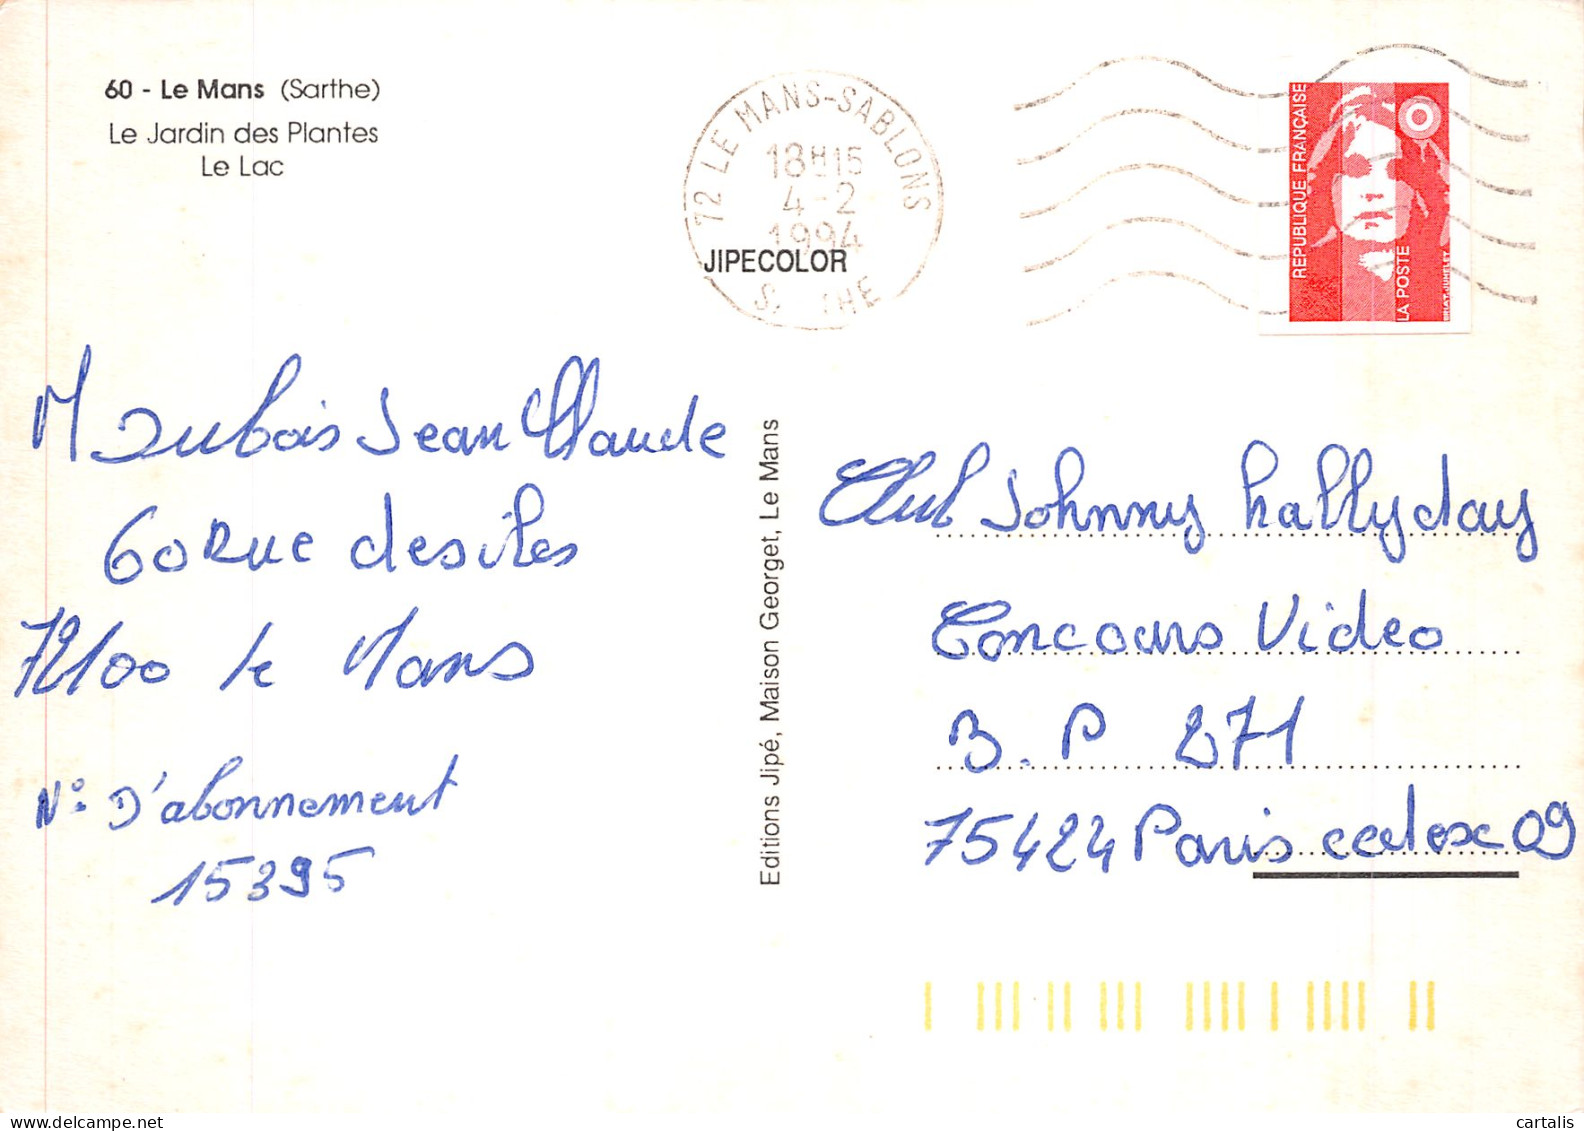 60 - Le Mans (Sarthe)
Le Jardin des Plantes
Le Lac
72 LE MANS-SABLONS
18H15
4-2
1994
JIPECOLOR
REPUBLIQUE FRANÇAISE
LA POSTE
M Dubois Jean Claude
60 Rue des iles
72100 le Mans
N° D'abonnement
15395
Editions Jipé, Maison Georget, Le Mans
Club Johnny hallyday
Concours Video
B.P 271
75424 Paris cedex 09
cartalis